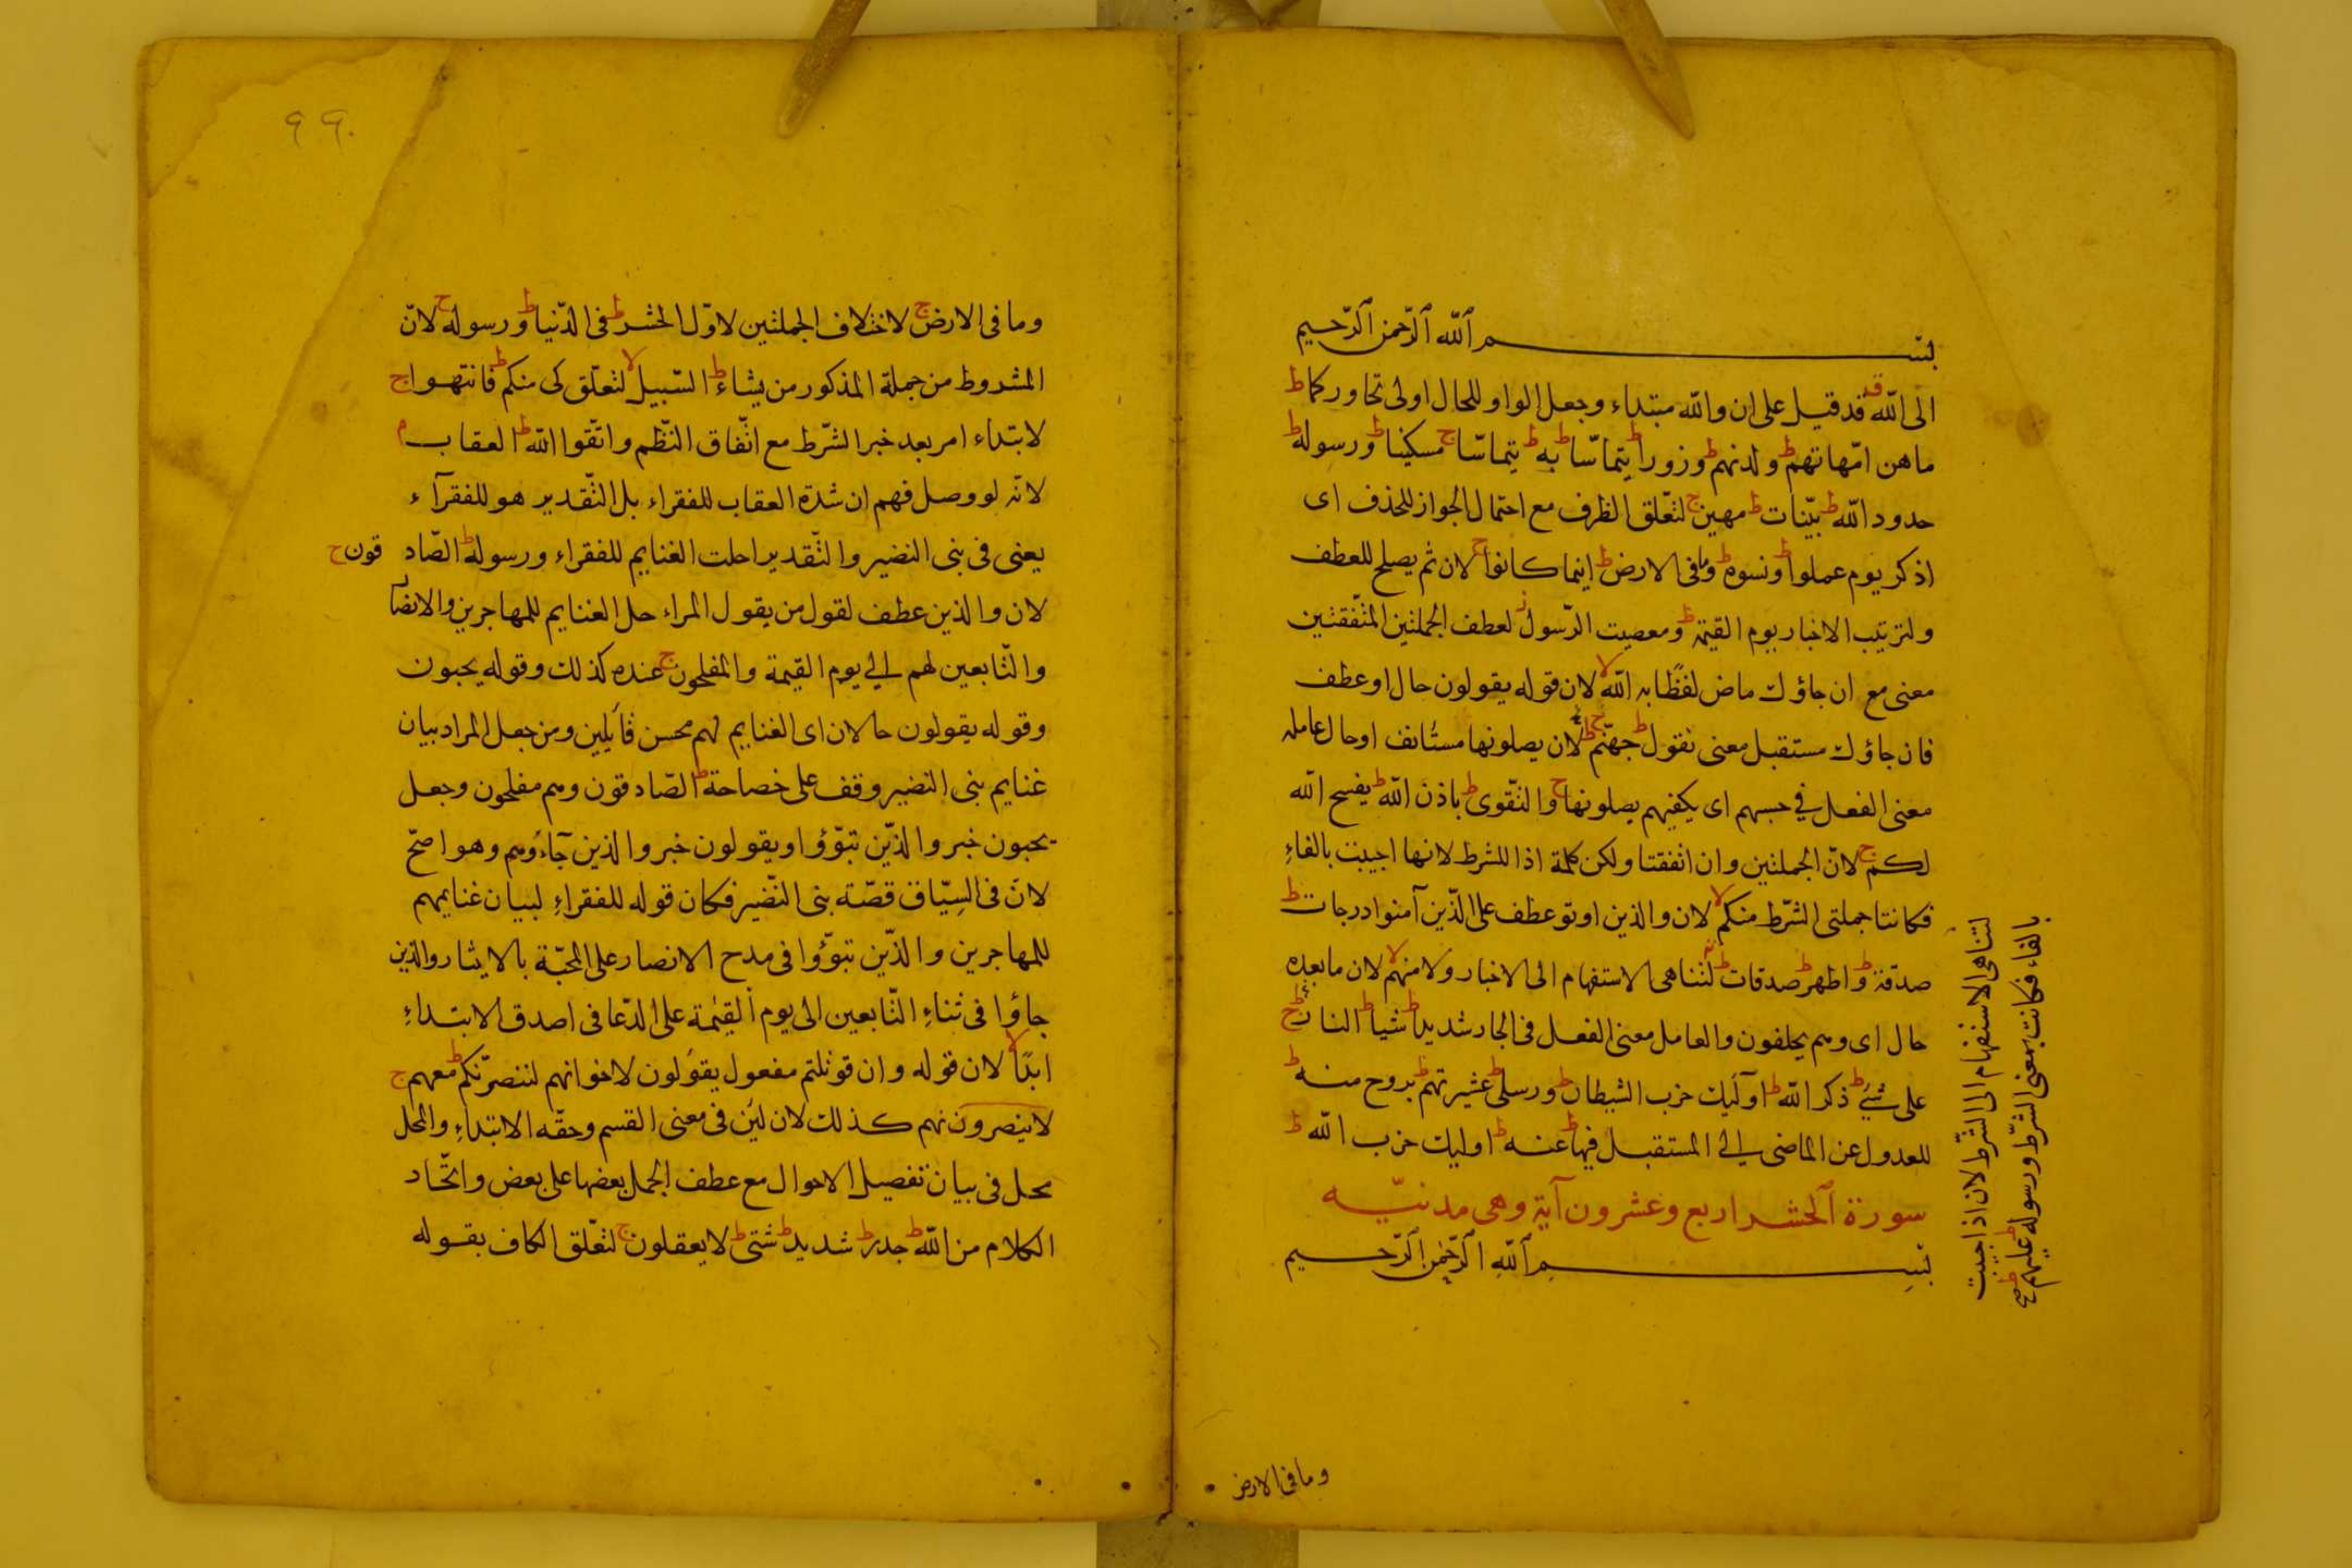 بسم الله الرحمن الرحيم
الى الله قد قد قيل على ان والله مبتداء وجعل الواو للحال اولى تحاوركما ط
ما هن امّهاتهم ط ولدنهم ط وزورا ط يتماسّا ط به ط يتماسّا ج مسكينا ط ورسوله ط
حدود الله ط بيّنات ط مهين ج لتعّلق الظرف مع احتمال الجواز للحذف اى
اذكر يوم عملوا ط ونسوه ط وما فى الارض ط اينما كانوا ج لان ثم يصلح للعطف
ولترتيب الاخبار يوم القيمة ط ومعصيت الرّسول ز لعطف الجملتين المتّفقتين
معنى مع ان جاؤك ماض لفظًا به الله لا لان قوله يقولون حال او عطف
فان جاؤك مستقبل معنى نقول ط جهنّم ج ط لان يصلونها مستأنف او حال عامله
معنى الفعل في حسبهم اى يكفيهم يصلونها ج والتّقوى ط باذن الله ط يفسح الله
لكم ج لانّ الجملتين وان اتفقتا ولكن كلمة اذا للشرط لانها اجيبت بالفاءِ
فكانتا جملتى الشّرط منكم لا لان والذين اوتو عطف على الذّين آمنوا درجات ط
صدقة ط واطهر ط صدقات ط لتناهى الاستفهام الى الاخبار ولا منهم لا لان ما بعده
حال اى وهم يحلفون والعامل معنى الفعل فى الجار شديدا ط شيا ط النار ط ج
على شئ ط ذكر الله ط اولٓئِك حزب الشيطان ط ورسلى ط عشيرتهم ط بروح منه ط
للعدول عن الماضى الى المستقبل فيها ط عنه ط اوليك حزب الله ط
سورة الحشر اربع وعشرون آية وهى مدنيّه
بسم الله الرحمن الرحيم
لتناهى الاستفهام الى الشّرط لان اذا اجيبت
بالفاء فكانت بمعنى الشّرط ورسوله ط عليهم ط
وما فى الارض
٩٩
وما فى الارض ج لاختلاف الجملتين لاوّل الحشر ط فى الدّنيا ط ورسوله ج لانّ
المشروط من جملة المذكور من يشاء ط السّبيل لا لتعلّق كى منكم ط فانتهوا ج
لابتداء امر بعد خبر الشّرط مع اتّفاق النّظم واتّقوا الله ط العقاب م
لانّه لو وصل فهم ان شدة العقاب للفقراء بل التّقدير هو للفقرآء
يعنى فى بنى النضير والتّقدير احلت الغنايم للفقراء ورسوله ط الصّاد قون ج
لان والذين عطف لقول من يقول المراء حل الغنايم للمهاجرين والانصا
والتّابعين لهم الى يوم القيمة والمفلحون ج عنده كذلك وقوله يحبون
وقوله يقولون حالان اى الغنايم لهم محسن قآيلين ومن جعل المراد بيان
غنايم بنى النضير وقف على خصاحة ط الصّادقون وهم مفلحون وجعل
يحبون خبر والذّين تبوّؤا ويقولون خبر والذين جآءُوهم وهو اصحّ
لانّ فى السِيّاق قصّة بنى النّضير فكان قوله للفقراءِ لبيان غنايمهم
للمهاجرين والذّين تبوّؤوا فى مدح الانصار على المحبّة بالايثار والذين
جاؤا فى ثناءِ التّابعين الى يوم القيمة على الدّعا فى اصدق الابتداءِ
ابدًا لا لان قوله وان قوتلتم مفعول يقولون لاخوانهم لننصرّنكم ط معهم ج
لا ينصرونهم كذلك لان لئن فى معنى القسم وحقّه الابتداءِ والمحل
محل فى بيان تفصيل الاحوال مع عطف الجمل بعضها على بعض واتّحاد
الكلام من الله ط جدر ط شديد ط شتى ط لا يعقلون ج لتعّلق الكاف بقوله